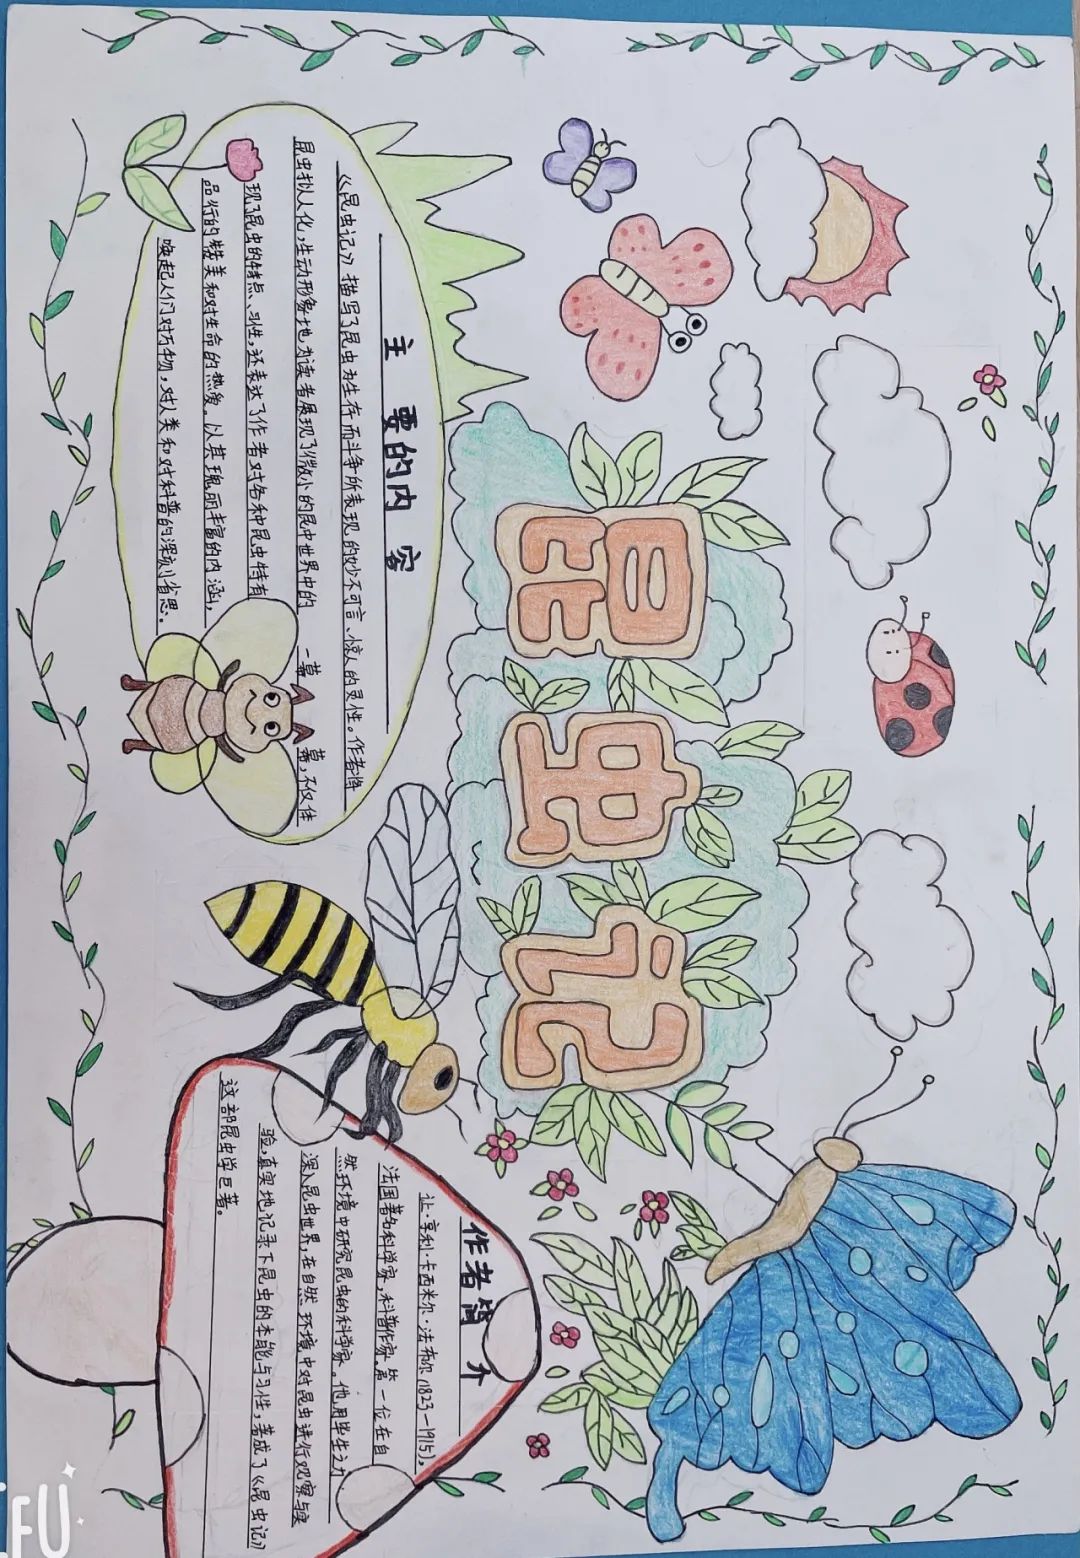 昆虫记
主要的内容
《昆虫记》描写了昆虫为生存而斗争所表现的妙不可言、惊人的灵性。作者将
昆虫拟人化,生动形象地为读者展现了微小的昆虫世界中的一幕幕,不仅体
现了昆虫的特点、习性,还表达了作者对各种昆虫特有
品行的赞美和对生命的热爱。以其瑰丽丰富的内涵,
唤起人们对万物,对人类和对科普的深刻省思。
作者简介
让·亨利·卡西米尔·法布尔(1823-1915)。
法国著名科学家,科普作家。第一位在自
然环境中研究昆虫的科学家。他用毕生之力
深入昆虫世界,在自然环境中对昆虫进行观察与实
验,真实地记录下昆虫的本能与习性,著成了《昆虫记》
这部昆虫学巨著。
FU